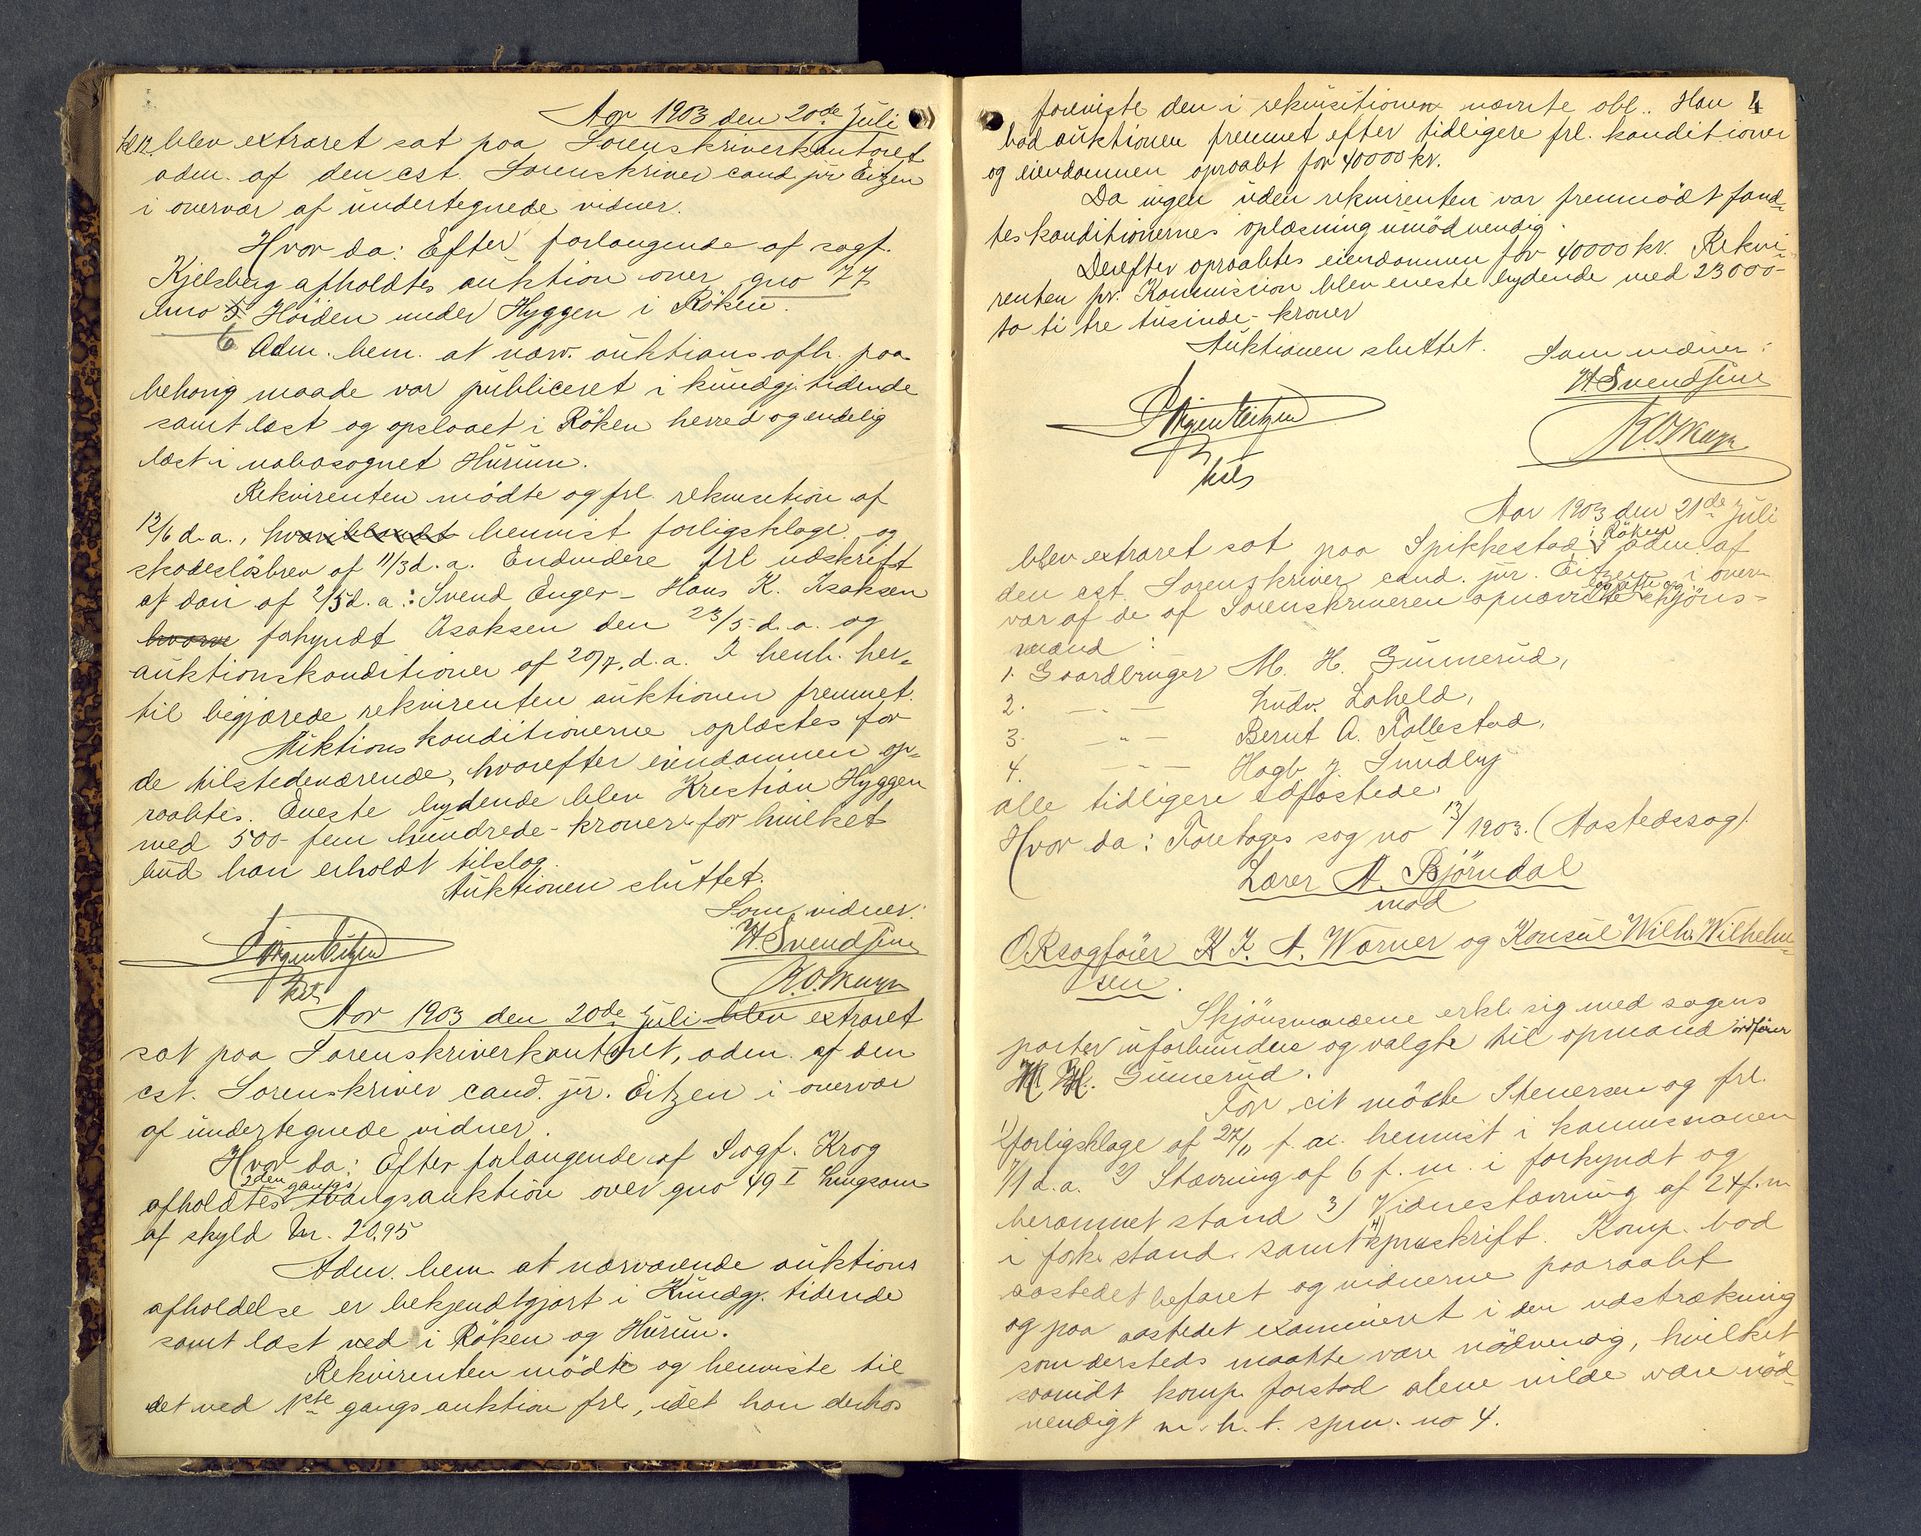 Aar 1903 den 20de Juli
kl 12. blev extraret sat paa Sorenskriverkontoret
adm. af den cst. Sorenskriver cand jur Eitzen
i overvær af undertegnede vidner.
Hvor da: Efter forlangende af sagf.
Kjelsberg afholdtes auktion over gno 77
bno 6 Höiden under Hyggen i Röken.
Adm. bem. at nærv. auktions afh. paa
behørig maade var publiceret i kundgj. tidende
samt læst og opslaaet i Röken herred og endelig
læst i nabosognet Hurum.
Rekvirenten mödte og frl. rekvisition af
12/6 d.a., henvist forligsklage og
skadeslösbrev af 11/3 d. a. Endvidere frl udskrift
af dom af 2/5 d. a.: Svend Enger - Hans K. Isaksen
forkyndt Isaksen den 23/5 d. a. og
auktionskonditioner af 20/7. d. a. I henh. her-
til begjærede rekvirenten auktionen fremmet.
Auktionskonditionerne oplæstes for
de tilstedeværende, hvorefter eiendommen op-
raabtes. Eneste bydende blev Kristian Hyggen
med 500 - fem hundrede - kroner for hvilket
bud han erholdt tilslag.
Auktionen sluttet.
Som vidner:
Jörgen Eitzen
cst
H Svendsen
Aar 1903 den 20de Juli blev extraret
sat paa Sorenskriverkontoret, adm. af den
cst. Sorenskriver cand. jur. Eitzen i overvær
af undertegnede vidner.
Hvor da: Efter forlangende af Sagf. Krog
2den gangs
afholdtes tvangsauktion over gno 49 I Lingsom
af skyld M. 20,95
Adm. bem. at nærværende auktions
afholdelse er bekjendtgjort i Kundgj. tidende
samt læst ved i Röken og Hurum.
Rekvirenten mödte og henviste til
det ved 1ste gangs auktion frl, idet han derhos
4
foreviste den i rekvisitionen nævnte obl.. Han
bad auktionen fremmet efter tidligere frl. konditioner
og eiendommen opraabt for 40000 kr.
Da ingen uden rekvirenten var fremmödt fand-
tes konditionernes oplæsning unödvendig.
Derefter opraabtes eiendommen for 40000 kr. Rekvi-
renten pr. Kommission blev eneste bydende med 23000 -
to ti tre tusinde - kroner
Auktionen sluttet.
Som vidner:
H Svendsen
Jörgen Eitzen
cst
Aar 1903 den 21de Juli
i Röken
blev extraret sat paa Spikkestad adm. af
den cst. Sorenskriver cand. jur. Eitzen i over-
vær af de af Sorenskriveren opnævnte skjöns-
mænd:
1. Gaardbruger M. H. Gunnerud,
2. — " — Ludv. Laheld,
3. — " — Bernt A. Follestad,
4. — " — Hagb. J. Sundby
alle tidligere edfæstede.
Hvor da: Foretages sag no 13/1903. (Aastedssag).
Lærer A. Björndal
mod
ORsagförer K. I. A. Warner og Konsul Wilh. Wilhelm-
sen.
Skjönsmændene erkl. sig med sagens
parter uforbundne og valgte til opmand ordförer
M. H. Gunnerud.
For cit mödte Stenersen og frl.
1) forligsklage af 27/11 f. a. henvist i kommissionen
7/1 d. a. 2) Stævning af 6 f. m. i forkyndt og
berammet stand 3) Vidnestævning af 24 f. m
i fork. stand. samt 4) spm.skrift. Komp. bad
aastedet befaret og vidnerne paaraabt
og paa aastedet examineret i den udstrækning
som dersteds maatte være nödvendig, hvilket
saavidt komp. forstod alene vilde være nöd-
vendigt m. h. t. spm. no 4.